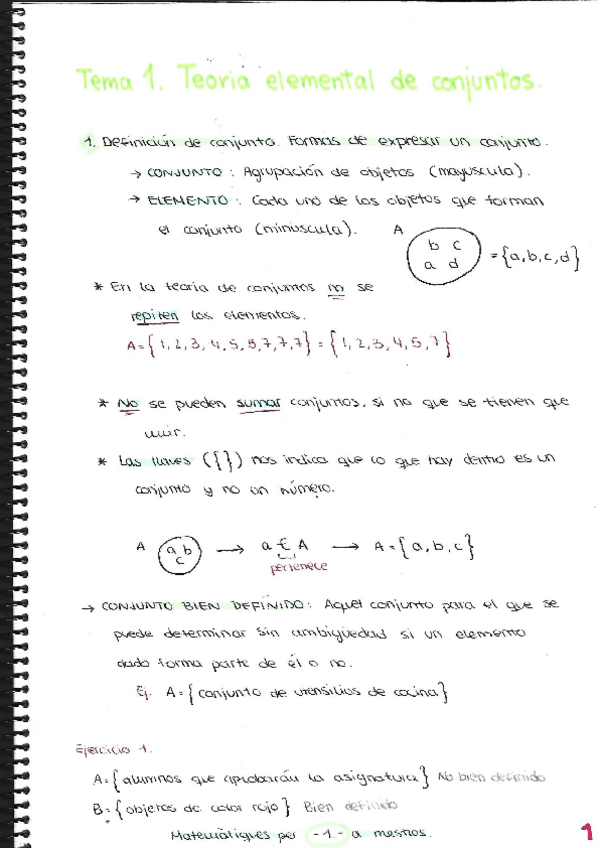 Tema 1. Teoria elemental de conjuntos.
1. Definición de conjunto. Formas de expresar un conjunto.
→ CONJUNTO: Agrupación de objetos (mayuscula).
→ ELEMENTO: Cada uno de los objetos que forman
el conjunto (minuscula).
A
b c
a d
= {a, b, c, d}
* En la teoria de conjuntos no se
repiten los elementos.
A = {1, 2, 3, 4, 5, 5, 7, 7, 7} = {1, 2, 3, 4, 5, 7}
* No se pueden sumar conjuntos, si no que se tienen que
unir.
* Las llaves ({}) nos indica que lo que hay dentro es un
conjunto y no un número.
A a b c → a ∈ A → A = {a, b, c}
pertenece
→ CONJUNTO BIEN DEFINIDO: Aquel conjunto para el que se
puede determinar sin ambigüedad si un elemento
dado forma parte de él o no.
Ej. A = {conjunto de utensilios de cocina}
Ejercicio 1.
A = {alumnos que aprobarán la asignatura} No bien definido
B = {objetos de color rojo} Bien definido
Matemàtiques per -1- a mestros.
1